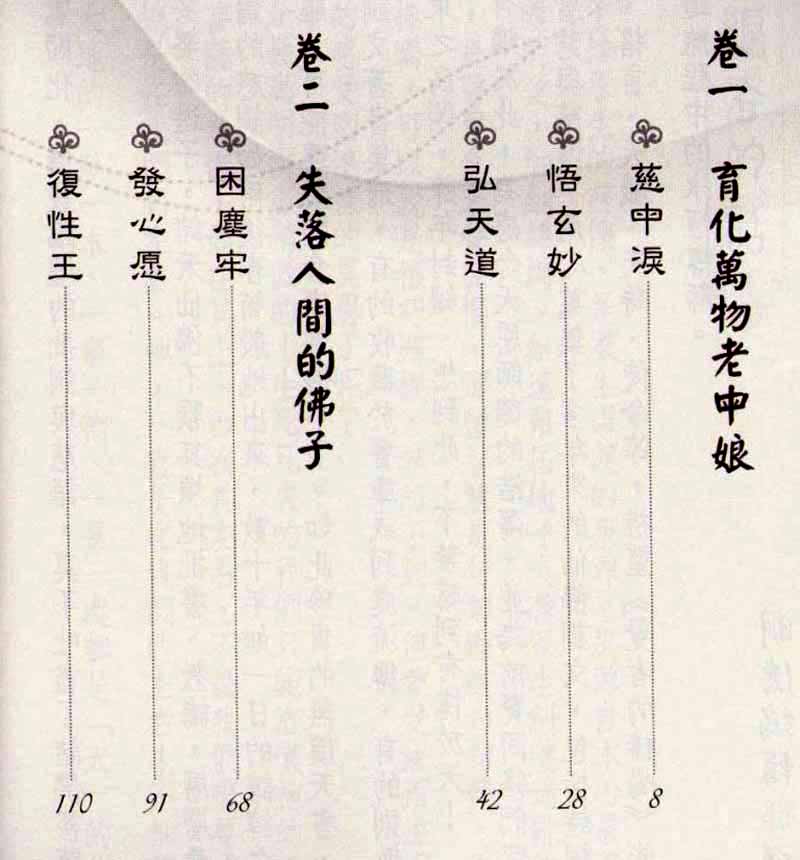 卷一 育化萬物老申娘
慈申淚 8
悟玄妙 28
弘天道 42
卷二 失落人間的佛子
困塵牢 68
發心愿 91
復性王 110